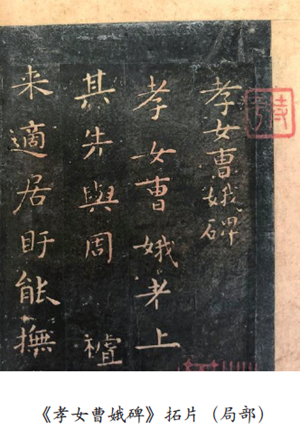 孝女曹娥碑
孝女曹娥者上
其先與周
來適居盱能撫
《孝女曹娥碑》拓片（局部）